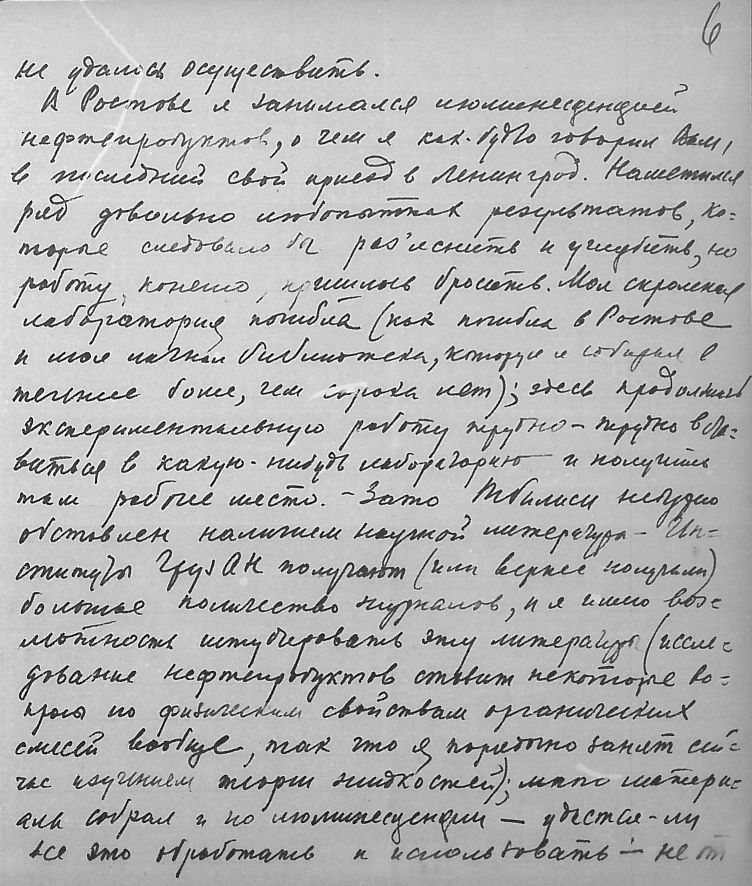 6
не удалось осуществить.
В Ростове я занимался люминесценцией
нефтепродуктов, о чем я как-будто говорил Вам,
в последний свой приезд в Ленинград. Наметился
ряд довольно любопытных результатов, ко-
торые следовало бы раз'яснить и углубить, но
работу, конечно, пришлось бросить. Моя скромная
лаборатория погибла (как погибла в Ростове
и моя личная библиотека, которую я собирал в
течение более, чем сорока лет); здесь продолжать
экспериментальную работу трудно - трудно
в какую-нибудь лабораторию и получить
там рабочее место. - Зато Тбилиси
обставлен наличием научной литературы - Ин-
ституты ГрузАН получают (или вернее получали)
большое количество журналов, и я имею воз-
можность штудировать эту литературу (иссле-
дование нефтепродуктов ставит некоторые во-
просы по физическим свойствам органических
смесей вообще, так что я порядочно занят сей-
час изучением теории жидкостей); много матери-
ала собрал и по люминесценции — удастся-ли
все это обработать и использовать - не от